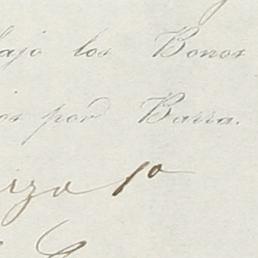 bajo los Bonos
os por Barra.
iza 1º